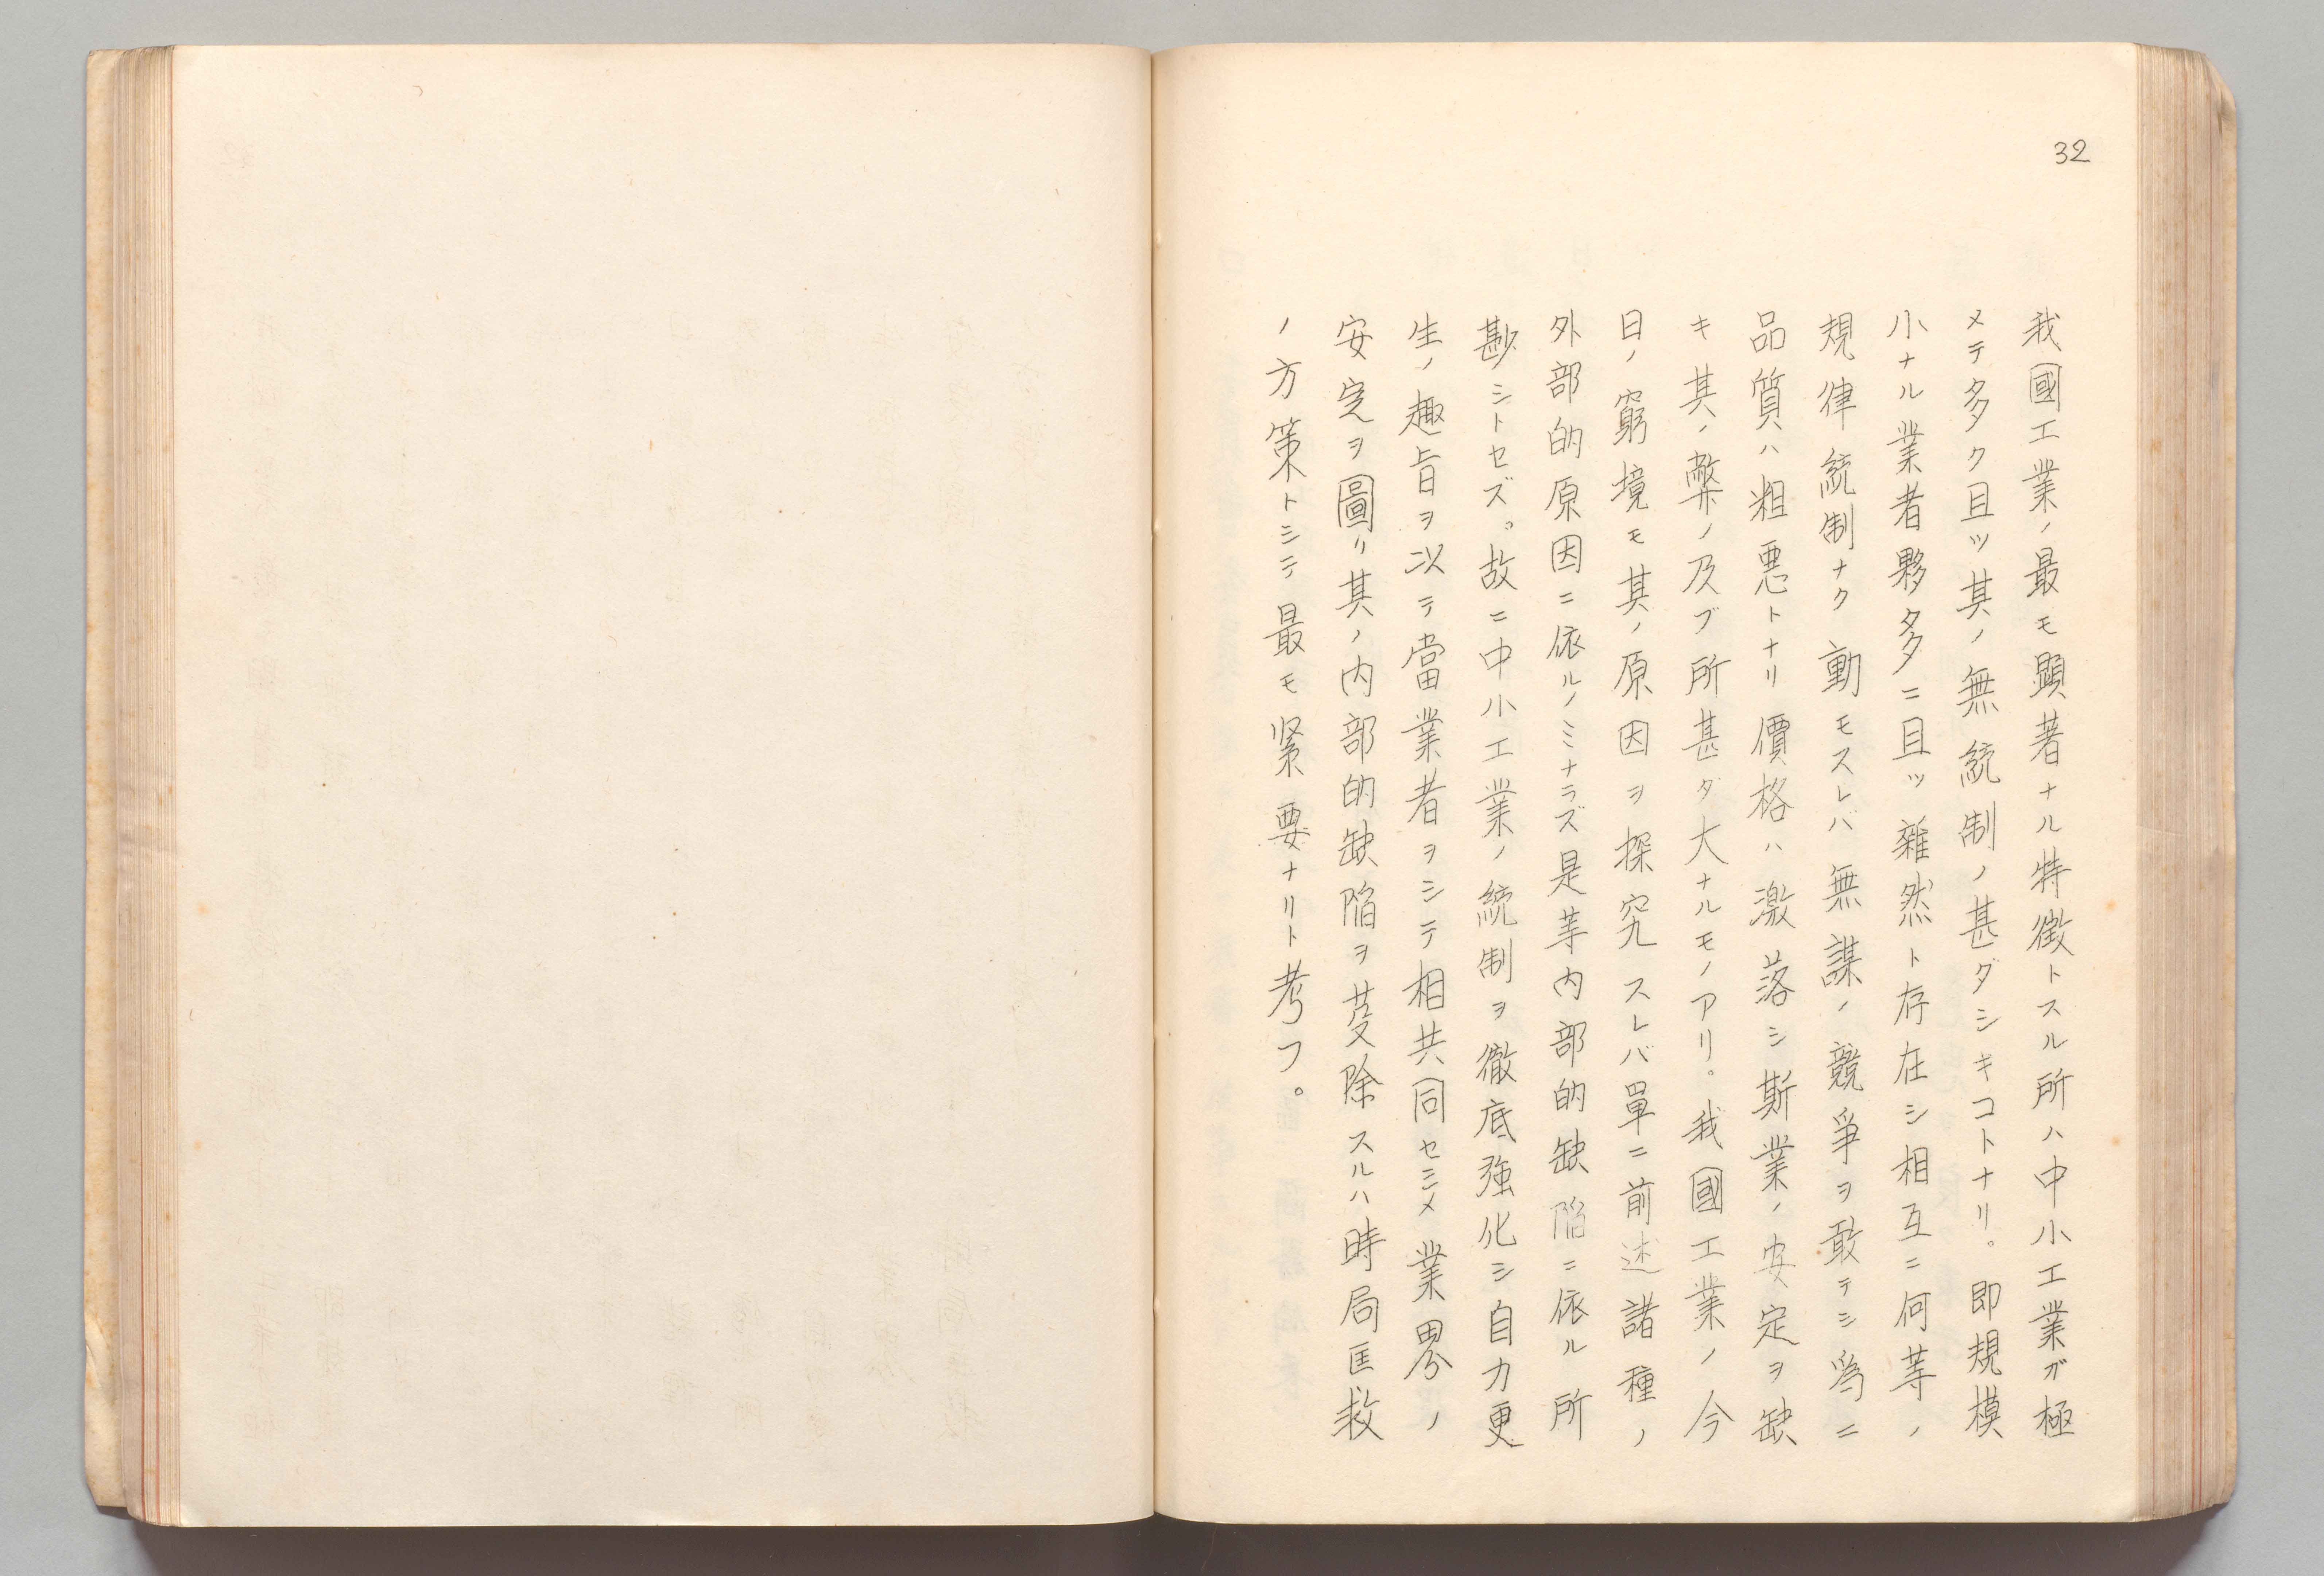 32
我國工業ノ最モ顕著ナル特徴トスル所ハ中小工業ガ極
メテ多ク且ツ其ノ無統制ノ甚ダシキコトナリ。即規模
小ナル業者夥多ニ且ツ雑然ト存在シ相互ニ何等ノ
規律統制ナク動モスレバ無謀ノ競争ヲ敢テシ為ニ
品質ハ粗悪トナリ價格ハ激落シ斯業ノ安定ヲ缺
キ其ノ弊ノ及ブ所甚ダ大ナルモノアリ。我國工業ノ今
日ノ窮境モ其ノ原因ヲ探究スレバ單ニ前述諸種ノ
外部的原因ニ依ルノミナラズ是等内部的缺陥ニ依ル所
尠シトセズ。故ニ中小工業ノ統制ヲ徹底強化シ自力更
生ノ趣旨ヲ以テ當業者ヲシテ相共同セシメ業界ノ
安定ヲ圖リ其ノ内部的缺陥ヲ芟除スルハ時局匡救
ノ方策トシテ最モ緊要ナリト考フ。